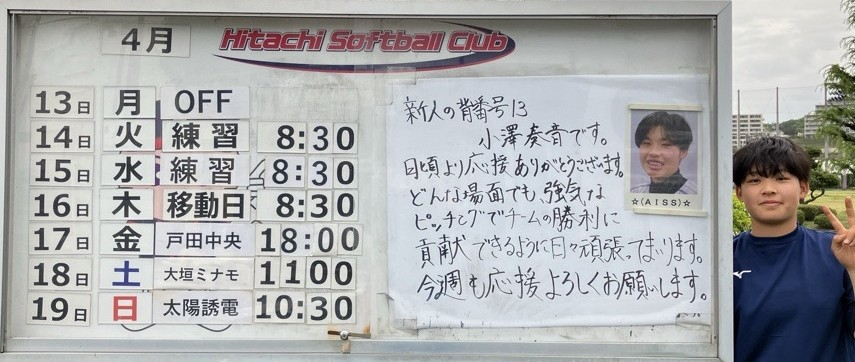 4月 Hitachi Softball Club
13日 月 OFF
14日 火 練習 8:30
15日 水 練習 8:30
16日 木 移動日 8:30
17日 金 戸田中央 18:00
18日 土 大垣ミナモ 1100
19日 日 太陽誘電 10:30
新人の背番号13
小澤奏音です。
日頃より応援ありがとうございます。
どんな場面でも、強気な
ピッチングでチームの勝利に
貢献できるように日々頑張ってまいります。
今週も応援よろしくお願いします。
☆(AISS)☆